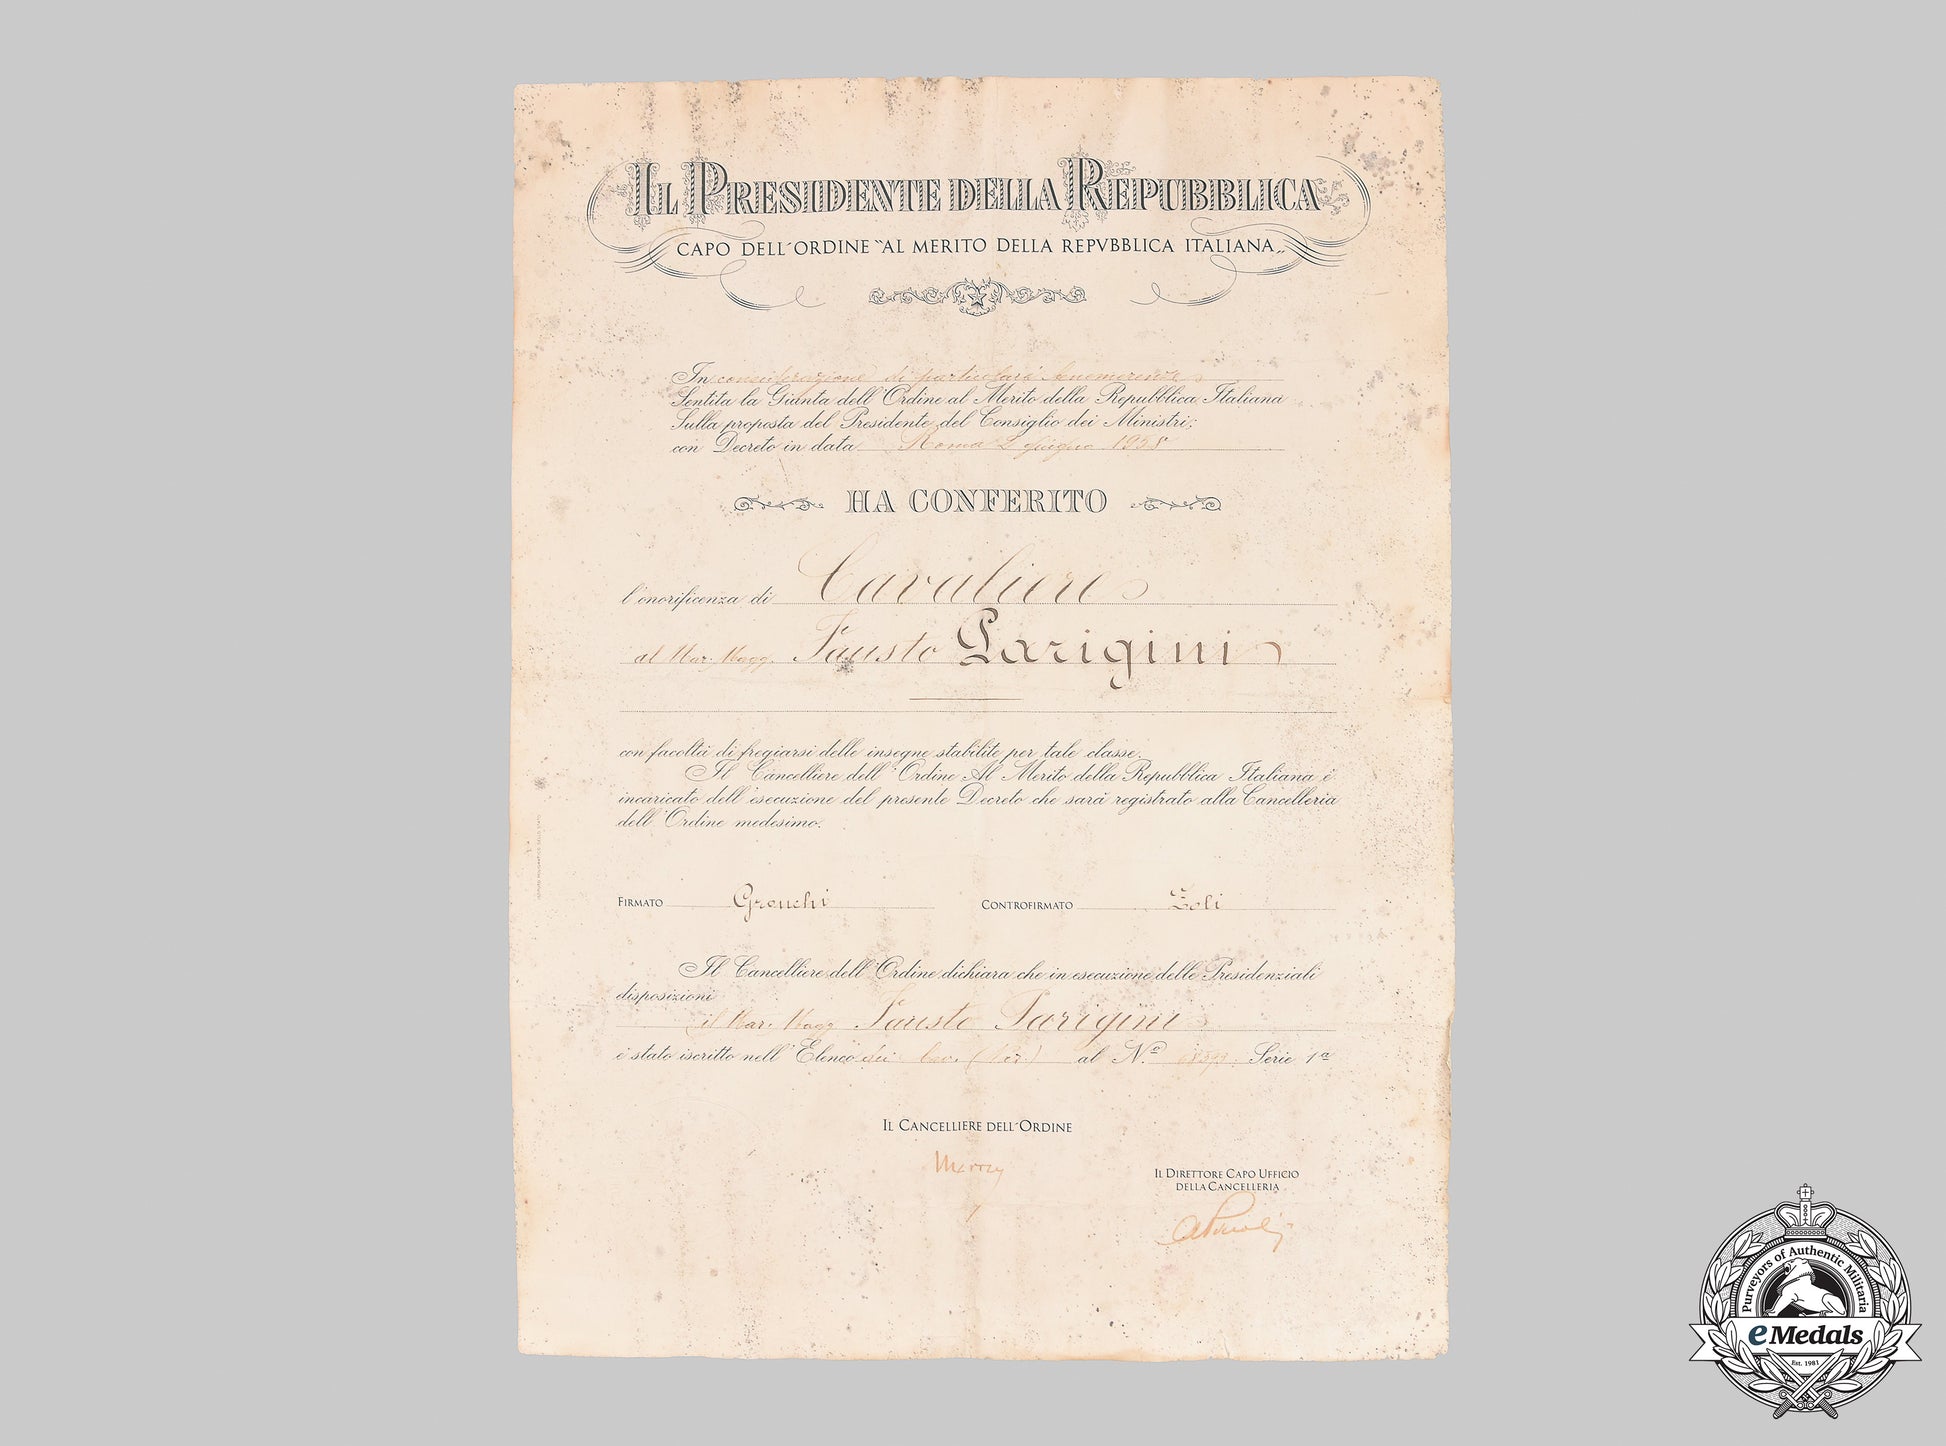 IL PRESIDENTE DELLA REPUBBLICA
CAPO DELL'ORDINE "AL MERITO DELLA REPVBBLICA ITALIANA„
In considerazione di particolari benemerenze
Sentita la Giunta dell'Ordine al Merito della Repubblica Italiana
Sulla proposta del Presidente del Consiglio dei Ministri;
con Decreto in data Roma 2 giugno 1958
HA CONFERITO
l'onorificenza di Cavaliere
al Mar. Magg. Fausto Parigini
con facoltà di fregiarsi delle insegne stabilite per tale classe.
Il Cancelliere dell'Ordine Al Merito della Repubblica Italiana è
incaricato dell'esecuzione del presente Decreto che sarà registrato alla Cancelleria
dell'Ordine medesimo.
FIRMATO Gronchi CONTROFIRMATO Zoli
Il Cancelliere dell'Ordine dichiara che in esecuzione delle Presidenziali
disposizioni
il Mar. Magg. Fausto Parigini
è stato iscritto nell'Elenco dei Cav. al N.º Serie 1ª
IL CANCELLIERE DELL'ORDINE
IL DIRETTORE CAPO UFFICIO
DELLA CANCELLERIA
Purveyors of Authentic Militaria
eMedals
Est. 1983